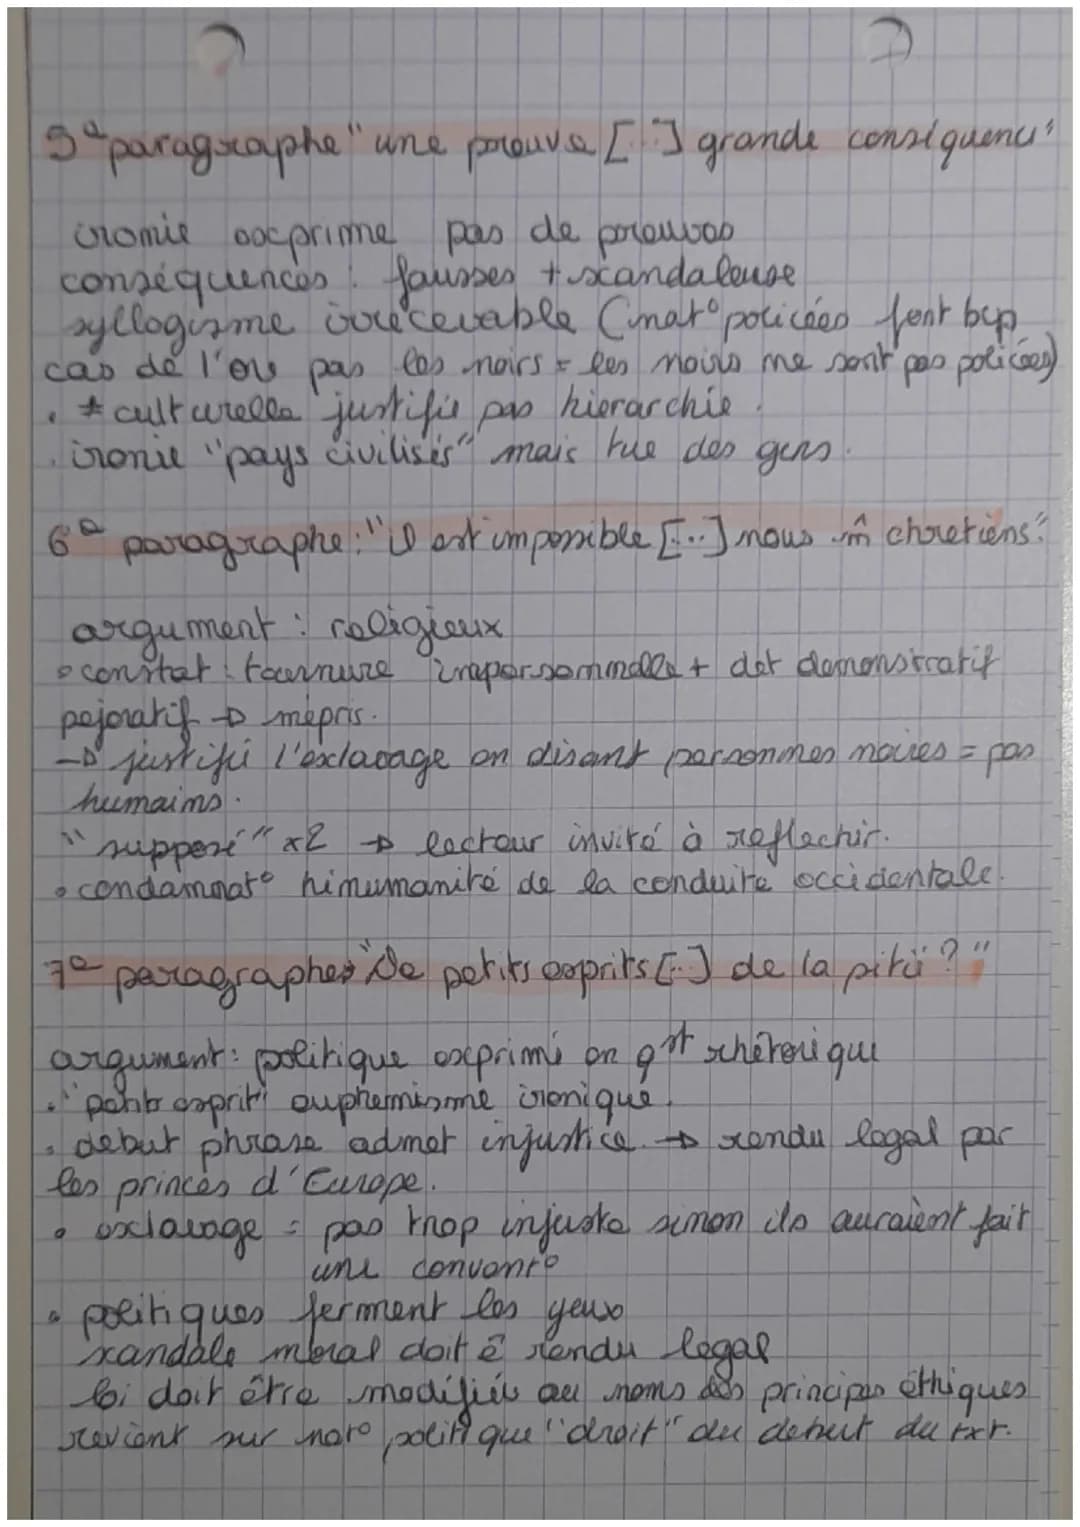 5e paragraphe "une preuve [...] grande conséquence"
ironie exprime pas de preuves
conséquences : fausses + scandaleuse
syllogisme irrecevable (nat° policées font bcp
cas de l'or pas les noirs = les noirs ne sont pas policées)
. ≠ culturelle justifie pas hierarchie.
. ironie "pays civilisés" mais tue des gens.
6e paragraphe : "il est impossible [...] nous m̂ chretiens".
argument : religieux
• constat : tournure impersonnelle + det demonstratif
pejoratif → mépris.
→ justifie l'esclavage en disant personnes noires = pas
humains.
"supposé" x2 → lecteur invité à reflechir.
• condamnat° hinumanité de la conduite occidentale.
7e paragraphes "De petits esprits [...] de la pitié ?"
argument : politique exprimé en qst rhétorique
. "petits esprits" euphemisme ironique.
. debut phrase admet injustice → rendu legal par
les princes d'Europe.
• esclavage = pas trop injuste sinon ils auraient fait
une convent°
• politiques ferment les yeux
scandale moral doit ê rendu legal
loi doit être modifiée au noms des principes éthiques
revient sur not° politique "droit" du debut du txt.